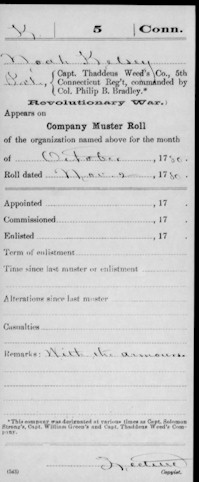 K 5 Conn.
Noah Kelsey
Capt. Thaddeus Weed's Co., 5th
Connecticut Reg't, commanded by
Col. Philip B. Bradley.*
Revolutionary War.
Appears on
Company Muster Roll
of the organization named above for the month
of October, 1780.
Roll dated Nov. 2, 1780.
Appointed , 17 .
Commissioned , 17 .
Enlisted , 17 .
Term of enlistment
Time since last muster or enlistment
Alterations since last muster
Casualties
Remarks: With the armourer
*This company was designated at various times as Capt. Solomon
Strong's, Capt. William Green's and Capt. Thaddeus Weed's Com-
pany.
(543) Copyist.